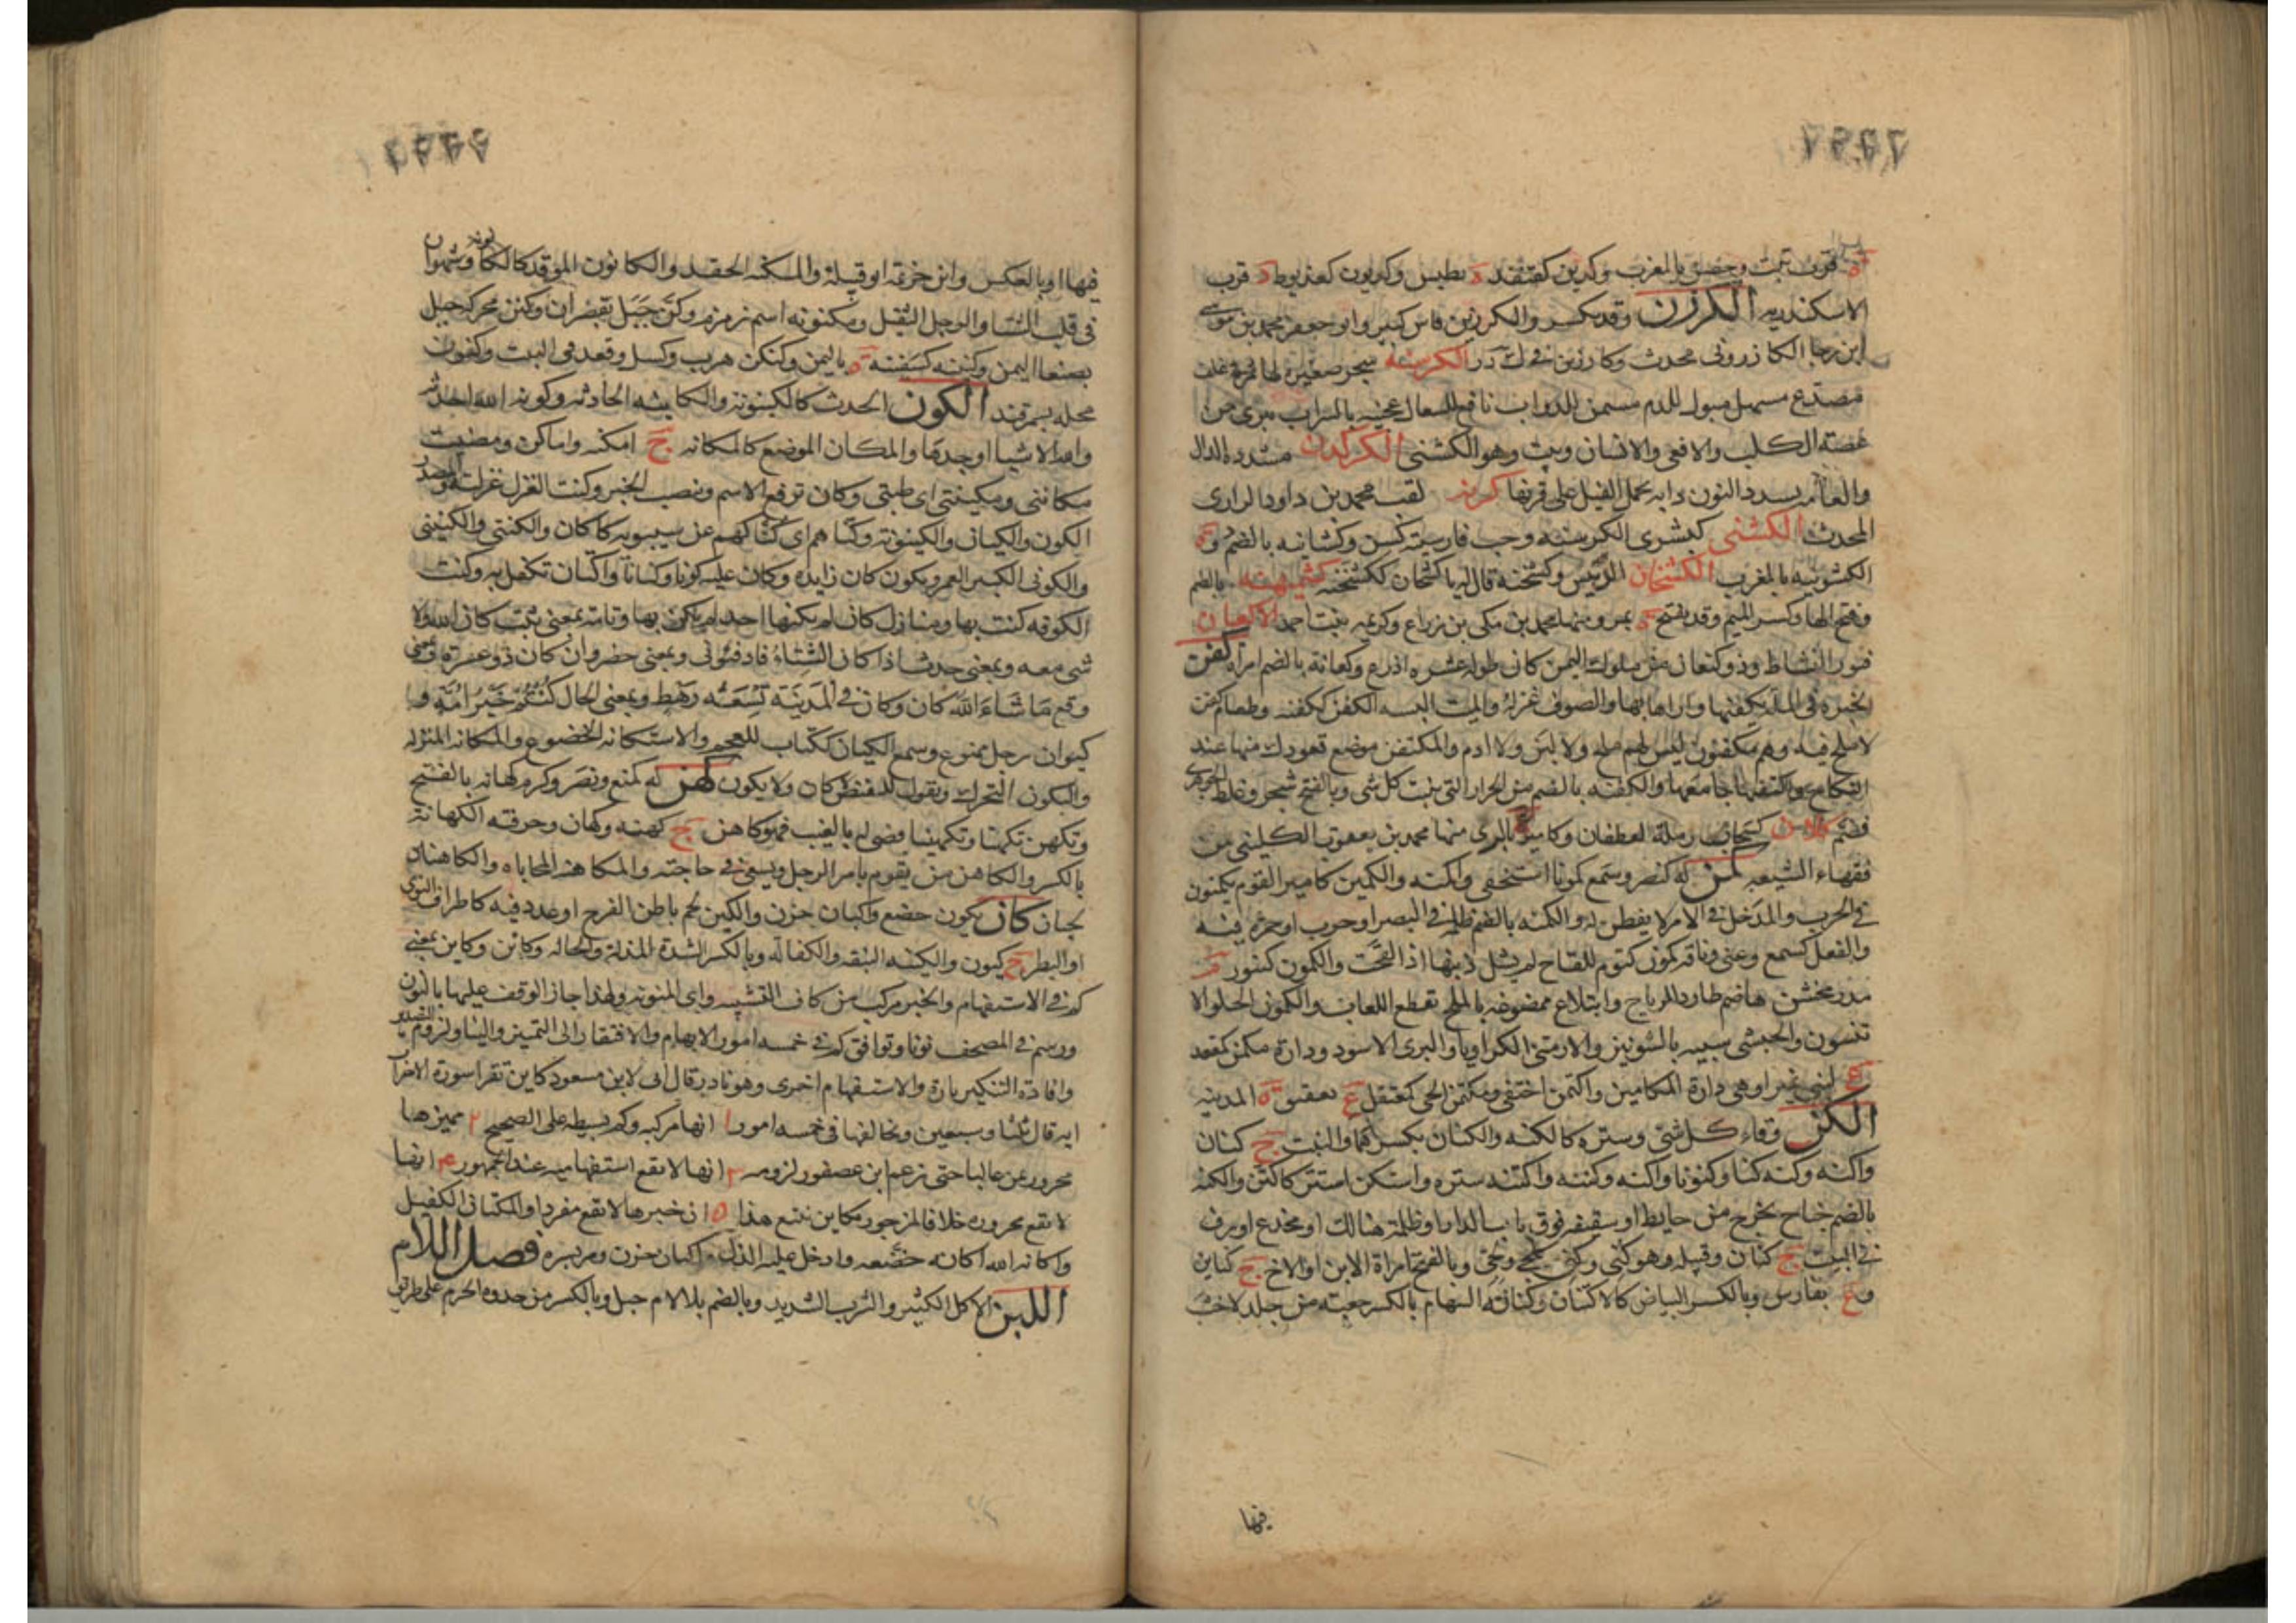 قرب تبت وحصن بالمغرب وكدين كفنفذ ة بطبس وكديون كعذيوط ة قرب
الاسكندريه الكرزن وقد يكسر والكرزين فاس كبير وابو جعفر محمد بن موسى
ابن رجا الكازروني محدث وكارزين في ك ر ز الكرسنه شجر صغيره لها ثمر في غلف
مصدع مسهل مبول للدم مسمن للدواب نافع للسعال عجنه بالشراب يبرئ من
عضة الكلب والافعى والانسان وبث وهو الكشنى الكركدن مشددة الدال
والعامة تشدد النون دابه تحمل الفيل على قرنها كرين لقب محمد بن داود الرازى
المحدث الكشنى كبشرى الكرسنه وحب فارسيته كسن وكشانيه بالضم
الكشونيه بالمغرب الكشخان الديس وكشخنه قال له يا كشخان ككشخنه كشميهنه بالضم
وفتح الها وكسر الميم وقد يفتح ة بمرو منها محمد بن مكى بن زراع وكريمه بنت احمد الاكعان
فتور النشاط وذو كنعان من ملوك اليمن كان طوله عشره اذرع وكعانة بالضم امراة كفن
الخبزه في الملة يكفنها واراها بها والصوف غزله والميت البسه الكفن ككفنه وطعام كفن
لا ملح فيه وهم مكفنون ليس لهم ملح ولا لبن ولا ادم والمكتفن موضع قعودك منها عند
النكاح واكتفنها جامعها والكفنه بالضم من الحرار التي تنبت كل شي وبالفتح شجر وغلط الجوهرى
فضم كلان كسحاب رملة لغطفان وكامير بالرى منها محمد بن يعقوب الكلينى من
فقهاء الشيعه كمن له كنصر وسمع كمونا استخفى واكمنه والكمين كامير القوم يكمنون
في الحرب والمدخل في الامر لا يفطن له والكمنه بالضم ظلمه في البصر او جرب او حمره فيه
والفعل كسمع وعنى وناقه كمون كتوم للقاح لم تشل ذنبها اذا لقحت والكمون كتنور
مدر مخشن هاضم طارد للرياح وابتلاع ممضوغه بالملح تقطع اللعاب والكمون الحلو الا
نيسون والحبشى شبيه بالشونيز والارمنى الكراويا والبرى الاسود ودارة مكمن كمقعد
ع لبنى نمير او هى دارة المكامين واكتمن اختفى ومكتمن الحمى كمعتقل ع بعقيق المدينه
الكن وقاء كل شى وستره كالكنه والكنان بكسرهما والبيت ج كنان
واكنه وكنه كنا وكنونا واكنه وكننه واكتنه ستره واستكن استتر كاكتن والكنه
بالضم جناح يخرج من حايط او سقيفه فوق باب الدار او ظلمة هنالك او مخدع او رف
في البيت ج كنان وقبيله وهو كنى وكنى كلجى ولجى وبالفتح امراة الابن او الاخ ج كناين
وع بفارس وبالكسر البياض كالاكنان وكنانة السهام بالكسر جعبته من جلد لا خشب
فيها
فيها او بالعكس وابن خزيمه ابو قبيلة والمستكنه الحقد والكانون الموقد كالكانونه وشهران
في قلب الشتا والرجل الثقيل ومكنونه اسم زمزم وكن جبل بقصران وكنن محركه جبل
بصنعا اليمن وكننه كسفنه ة باليمن وكنكن هرب وكسل وقعد في البيت وكنون
محله بسمرقند الكون الحدث كالكينونه والكاينه الحادثه وكونه الله احدثه
والله الاشيا اوجدها والمكان الموضع كالمكانه ج امكنه واماكن ومضيت
مكانتى ومكينتى اى طيتى وكان ترفع الاسم وتنصب الخبر وكنت الغزل غزلته والمصدر
الكون والكيان والكينونه وكنا هم اى كنا لهم عن سيبويه كاكان والكنتى والكنينى
والكونى الكبير العمر ويكون كان زايده وكان عليه كونا وكيانا واكتان تكفل به وكنت
الكوفه كنت بها ومنازل كان لم يكنها احد لم يكن بها وتامه بمعنى ثبت كان الله ولا
شى معه وبمعنى حدث اذا كان الشتاء فادفئونى وبمعنى حضر وان كان ذو عسرة وبمعنى
وقع ما شاء الله كان وكان في المدينة تسعة رهط وبمعنى الحال كنتم خير امة و
كيوان رجل ممنوع وسمع الكيان ككتاب للعجم والاستكانه الخضوع والمكانه المنزله
والتكون التحرك وتقول للبغيض لا كان ولا تكون كهن له كمنع ونصر وكرم كهانه بالفتح
وتكهن تكهنا وتكهينا قضى له بالغيب فهو كاهن ج كهنه وكهان وحرفته الكهانة
بالكسر والكاهن من يقوم بامر الرجل ويسعى في حاجته والمكاهنه المحاباه والكاهنان
حيان كان يكين خضع واكتان حزن والكين لحم باطن الفرج او غدد فيه كاطراف النوى
او البظر ج كيون والكينه النبقه والكفاله وبالكسر الشدة المذله والحاله وكاين وكاين بمعنى
كم في الاستفهام والخبر مركب من كاف التشبيه واى المنونه ولهذا جاز الوقف عليها بالنون
ورسم في المصحف نونا وتوافق كم في خمسه امور الابهام والافتقار الى التمييز والبنا ولزوم التصدير
وافادة التكثير تارة والاستفهام اخرى وهو نادر قال ابى لابن مسعود كاين تقرا سورة الاحزاب
ايه قال ثلثا وسبعين وتخالفها في خمسه امور ١ انها مركبه وكم بسيطه على الصحيح ٢ مميزها
مجرور بمن غالبا حتى زعم ابن عصفور لزومه ٣ انها لا تقع استفهاميه عند الجمهور ٤ انها
لا تقع مجروره خلافا لمن جوز بكاين تبيع هذا ٥ ان خبرها لا يقع مفردا والمكتان الكفيل
واكانه الله اكانه خضعه وادخل عليه الذل واكتان حزن ومربيره فصل اللام
اللبن الاكل الكثير والشرب الشديد وبالضم بلا لام جبل وبالكسر من حدود الحرم على طريق